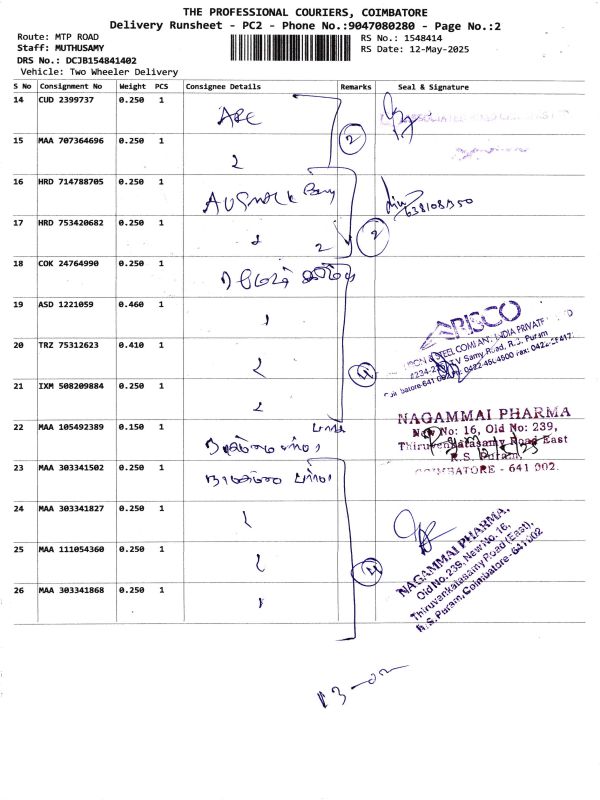 THE PROFESSIONAL COURIERS, COIMBATORE
Delivery Runsheet - PC2 - Phone No.:9047080280 - Page No.:2
Route: MTP ROAD
RS No.: 1548414
Staff: MUTHUSAMY
RS Date: 12-May-2025
DRS No.: DCJB154841402
Vehicle: Two Wheeler Delivery
S No Consignment No Weight PCS Consignee Details Remarks Seal & Signature
14 CUD 2399737 0.250 1
15 MAA 707364696 0.250 1
2 2
16 HRD 714788705 0.250 1
17 HRD 753420682 0.250 1
2 2
18 COK 24764990 0.250 1
19 ASD 1221059 0.460 1
ARISCO
20 TRZ 75312623 0.410 1
21 IXM 508209884 0.250 1
22 MAA 105492389 0.150 1
NAGAMMAI PHARMA
New No: 16, Old No: 239,
Thiruvenkatasamy Road East
R.S. Puram,
COIMBATORE - 641 002.
23 MAA 303341502 0.250 1
24 MAA 303341827 0.250 1
25 MAA 111054360 0.250 1
26 MAA 303341868 0.250 1
NAGAMMAI PHARMA,
Old No: 239, New No: 16,
Thiruvenkatasamy Road (East),
R.S. Puram, Coimbatore-641 002